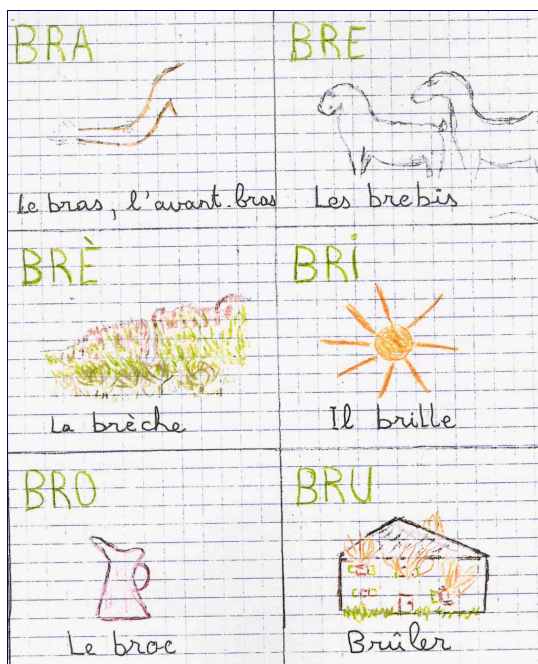 BRA
Le bras, l'avant-bras
BRE
Les brebis
BRÈ
La brèche
BRI
Il brille
BRO
Le broc
BRU
Brûler